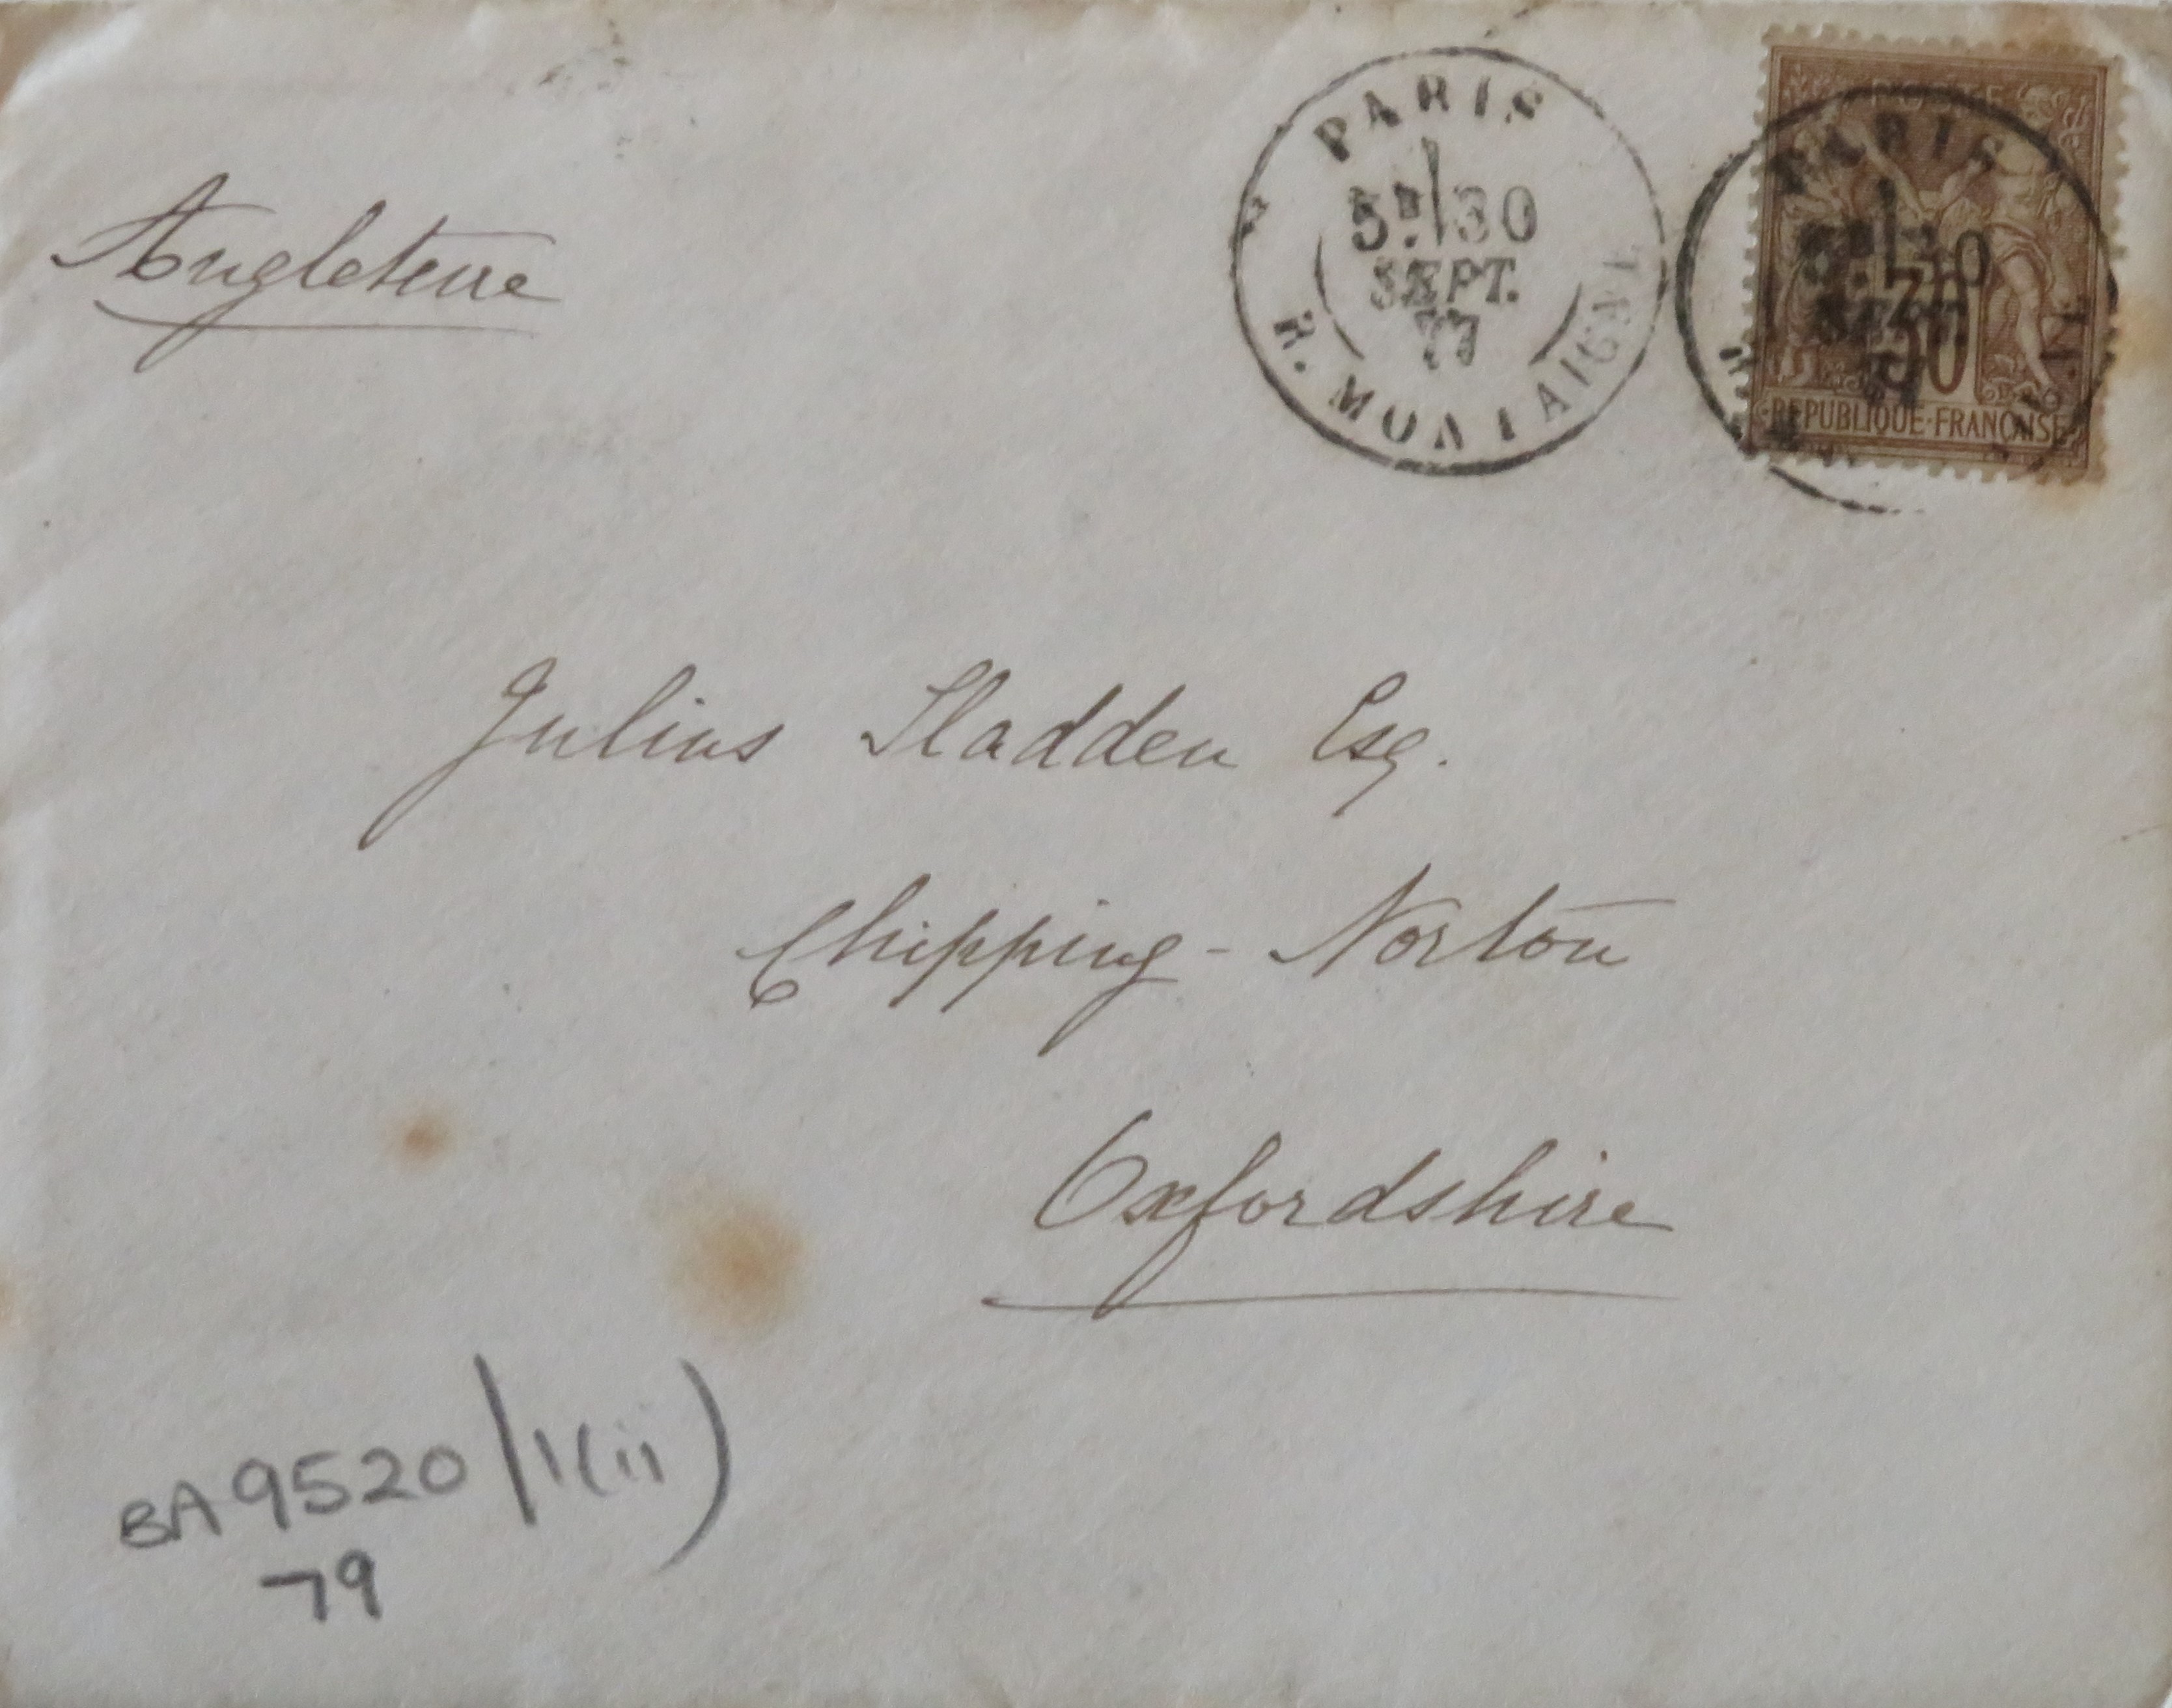 Angleterre
PARIS
5E/30
SEPT.
77
R. MONTAIGNE
PARIS
30
REPUBLIQUE·FRANÇAISE
Julius Sladden Esq.
Chipping-Norton
Oxfordshire
BA9520/1(ii)
79